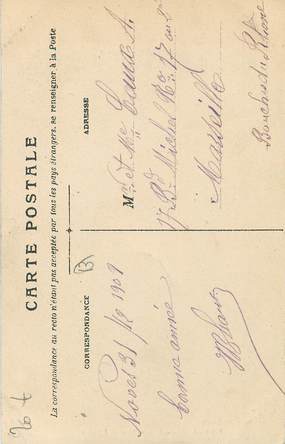 CARTE POSTALE
La correspondance au recto n'étant pas acceptée par tous les pays étrangers, se renseigner à la Poste
CORRESPONDANCE
Noves 31/12 1909
bonne année
ADRESSE
M et Me
17 Bd Michel
Marseille
Bouches du Rhône